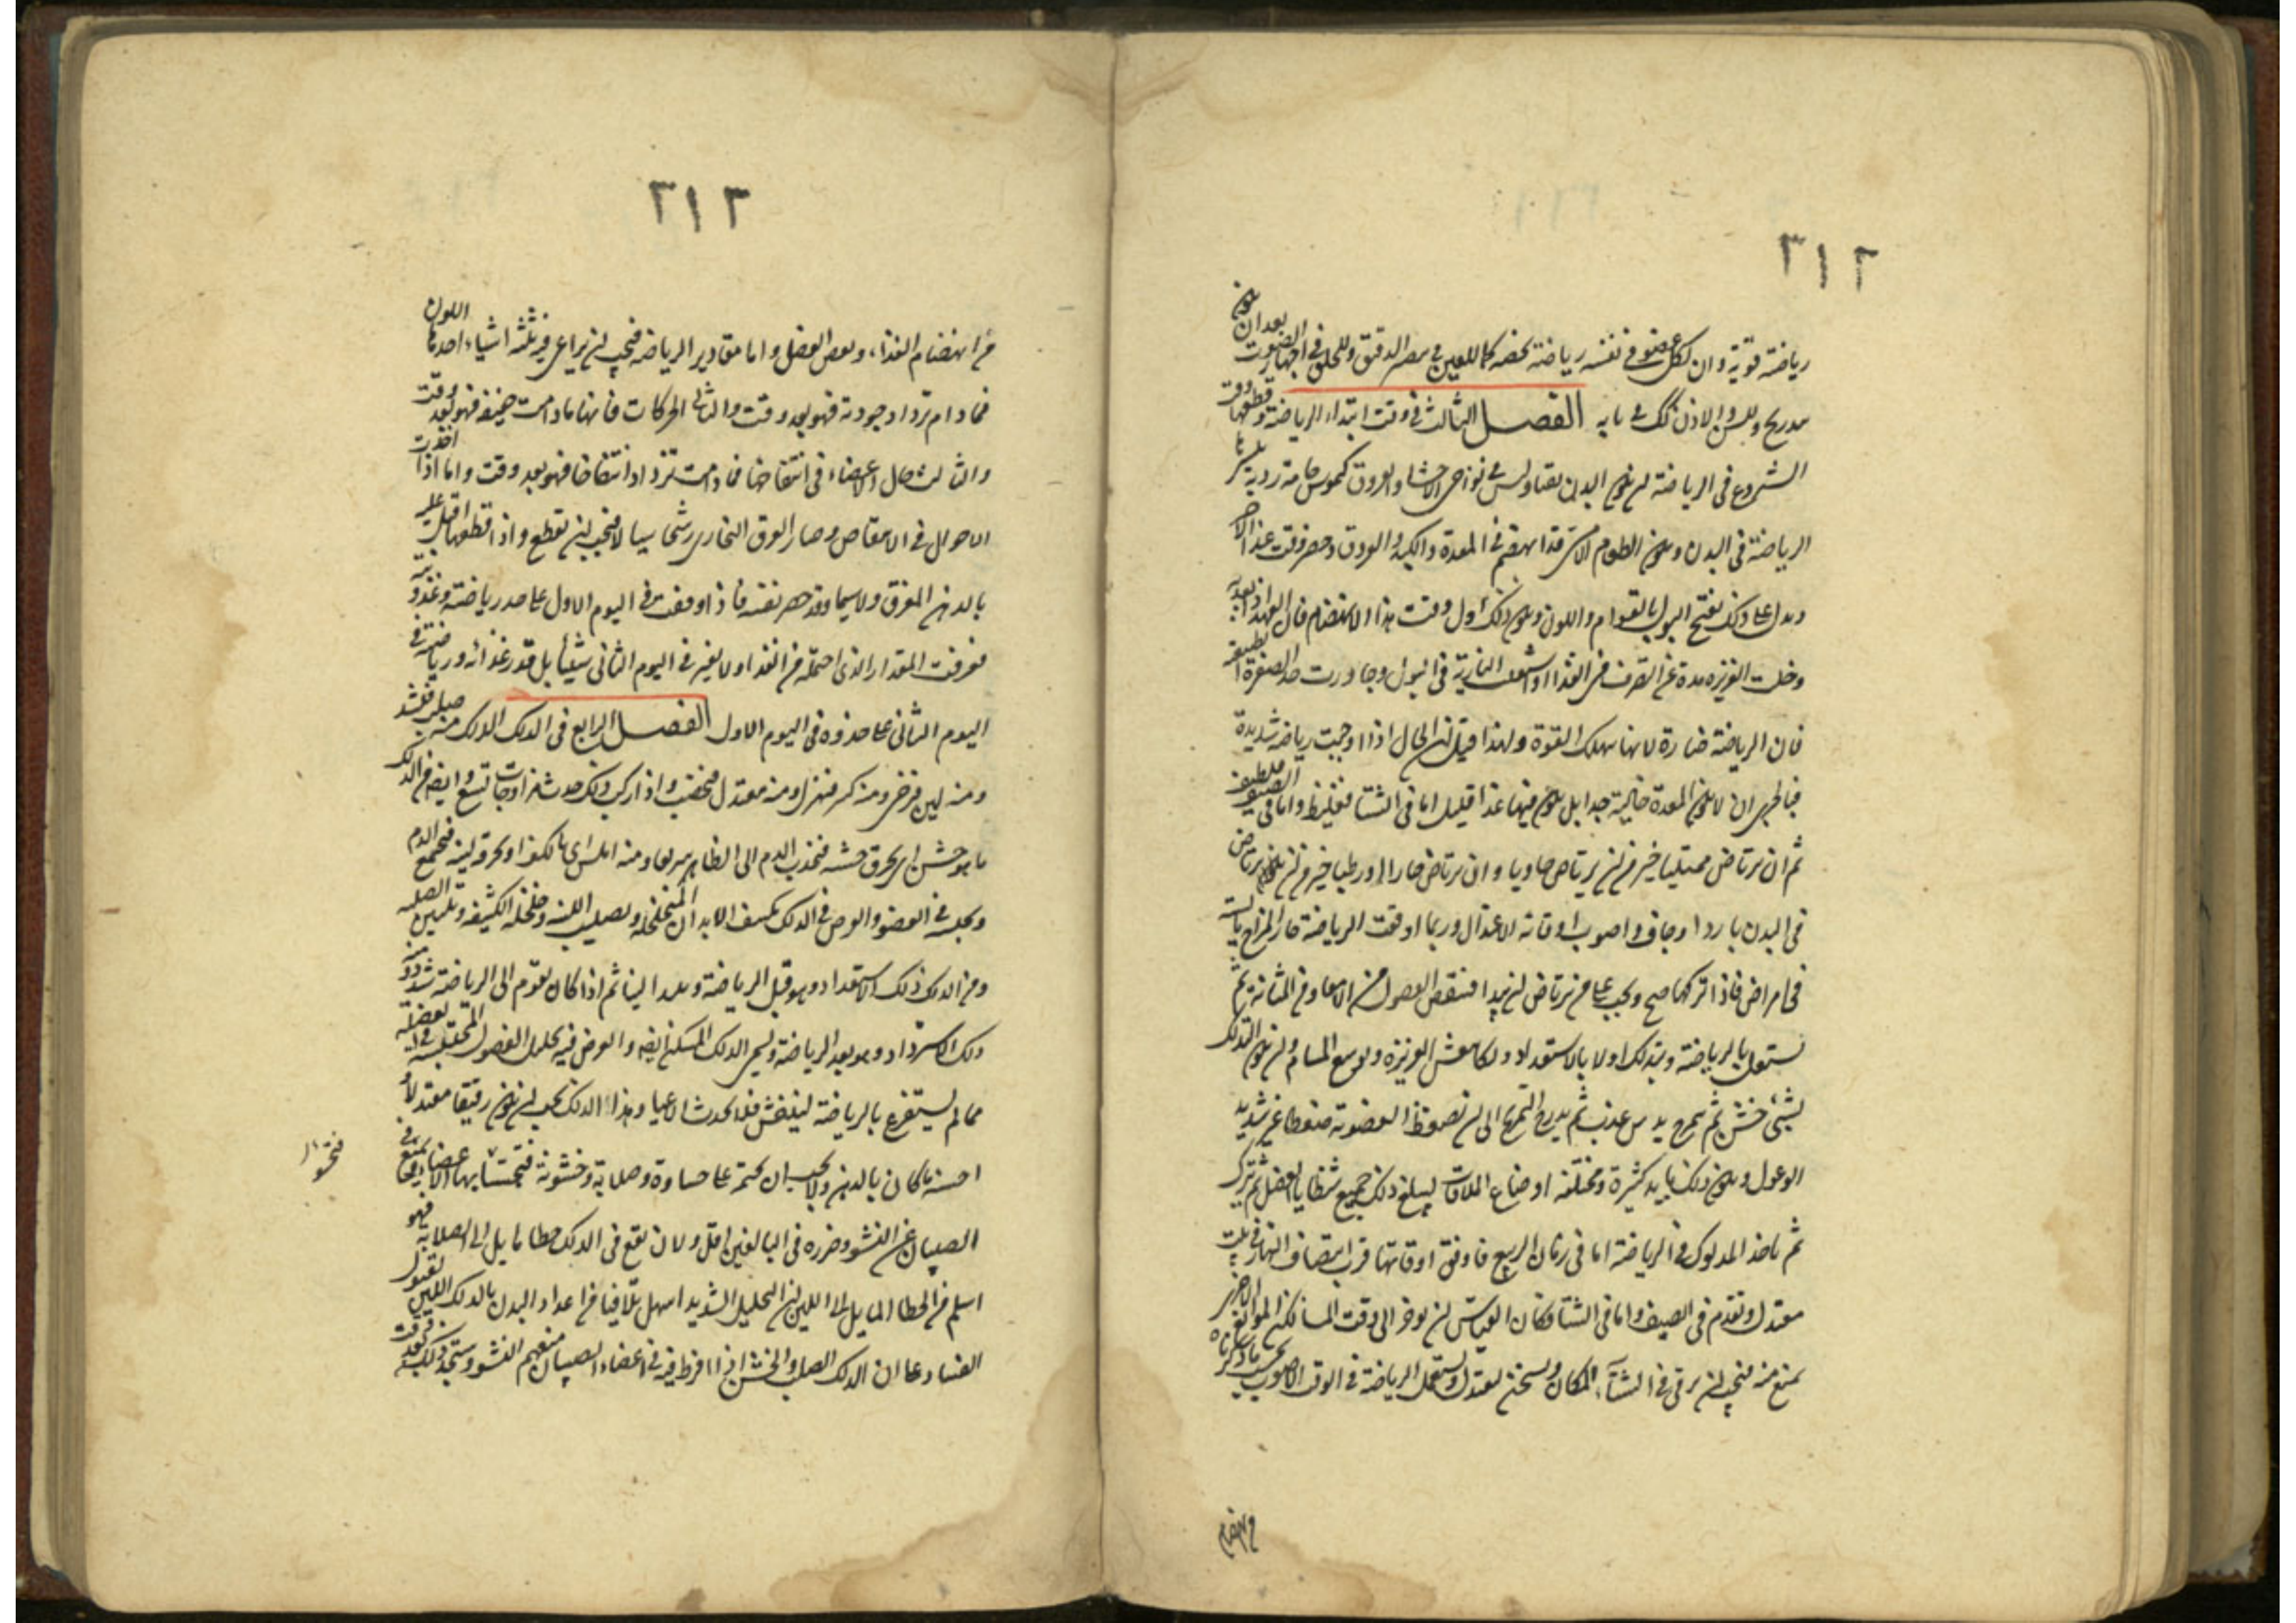 ٣١٢
رياضة قوية وان لكل عضو في نفسه رياضة تخصه كما للعين في تبصر الدقيق وللحلق في اجهار الصوت بعد ان يكون
بتدريج وللسن والاذن كك في بابه الفصل الثالث في وقت ابتداء الرياضة وقطعها وقت
الشروع في الرياضة ان يكون البدن نقيا وليس في نواحي الاحشا والعروق كيموسات خامة ردية ينشرها
الرياضة في البدن ويكون الطعام الامسي قد انهضم في المعدة والكبد والعروق وحضر وقت غذا الاخر
ويدل على ذلك نضج البول بالقوام واللون ويكون ذلك اول وقت هذا الانهضام فان العهد اذا بعد به
وخلت الغريزه مدة عن التصرف في الغذا واشتعلت النارية في البول وجاوزت حد الصفرة الطبيعية
فان الرياضة ضارة لانها تنهك القوة ولهذا قيل ان الحال اذا اوجبت رياضة شديدة
فبالحري ان لا يكون المعدة خالية جدا بل يكون فيها غذا قليل اما في الشتا فغليظ واما في الصيف فلطيف
ثم ان يرتاض ممتليا خير من ان يرتاض خاويا وان يرتاض حارا ورطبا خير من ان يرتاض
في البدن باردا وجافا واصوب اوقاته الاعتدال وربما اوقعت الرياضة حار المزاج يابسه
في امراض فاذا تركها صح ويجب على من يرتاض ان يبدا فينفض الفضول من الامعا ومن المثانة ثم
يشتغل بالرياضة ويتدلك اولا بالاستعداد دلكا ينعش الغريزه ويوسع المسام وان يكون التدلك
بشئ خشن ثم يتمرخ بدهن عذب ثم يدرج التمريخ الى ان يضغط العضو به ضغطا غير شديد
الوغول ويكون ذلك بايد كثيرة ومختلفه اوضاع الملاقات ليبلغ ذلك جميع شظايا العضل ثم يترك
ثم ياخذ المدلوك في الرياضة اما في زمان الربيع فاوفق اوقاتها قرب انتصاف النهار في بيت
معتدل ويقدم في الصيف واما في الشتا فكان القياس ان يؤخر الى وقت المسا لكن الموانع الاخرى
تمنع منه فيجب ان يرقى في الشتاء المكان ويسخن ليعتدل ويستعمل الرياضة في الوقت الاصوب بحسب ما ذكرناه
من انهضام
٣١٣
من انهضام الغذاء ونفض الفضل واما مقادير الرياضة فيجب ان يراعى فيه ثلثة اشياء احدها اللون
فما دام تزداد جودة فهو بعد وقت والثاني الحركات فانها ما دامت خفيفة فهو بعد وقت
والثالث حال الاعضاء في انتفاخها فما دامت تزداد انتفاخا فهو بعد وقت واما اذا اخذت
الاحوال في الانتقاص وصار العرق البخاري رشحا سيالا فيجب ان تقطع واذا قطعها اقبل عليه
بالدهن المعرق ولا سيما وقد حصر نفسه فاذا وقفت في اليوم الاول على حد رياضته وغذوته
فعرفت المقدار الذي احتمله من الغذا ولا يغير في اليوم الثاني شيئا بل قدر غذائه ورياضته في
اليوم الثاني على حذوه في اليوم الاول الفصل الرابع في الدلك الدلك منه صلب فيشد
ومنه لين فيرخي ومنه كثير فيهزل ومنه معتدل فيخصب واذا ركب ذلك حدث مزاوجات تسع وايضا من الدلك
ما هو خشن اي بخرق خشنه فيجذب الدم الى الظاهر سريعا ومنه املس اي بالكف او بخرقة لينه فيجمع الدم
ويحبسه في العضو والغرض في الدلك تكثيف الابدان المتخلخله وتصليب اللينه وخلخلة الكثيفه وتليين الصلبه
ومن الدلك دلك الاستعداد وهو قبل الرياضة ويبتدا لينا ثم اذا كان يقوم الى الرياضة شدد ومنه
دلك الاسترداد وهو بعد الرياضة ويسمى الدلك المسكن ايضا والغرض فيه تحليل الفضول المحتبسة في العضلة
مما لم يستفرغ بالرياضة لينتفش فلا يحدث الاعيا وهذا الدلك يجب ان يكون رقيقا معتدلا و
احسنه ما كان بالدهن ولا يجب ان يختم على جساوة وصلابة وخشونة فتجسا بها الاعضا ويمنع في
الصبيان عن النشو وضرره في البالغين اقل ولان يقع في الدلك خطا مايل الى الصلابة فهو
اسلم من الخطا المايل الى اللين لان التحليل الشديد اسهل تلافيا من اعداد البدن بالدلك اللين لقبول
الفساد على ان الدلك الصلب والخشن اذا افرط فيه في اعضاء الصبيان منعهم النشو وستجد ذلك بعد وقت